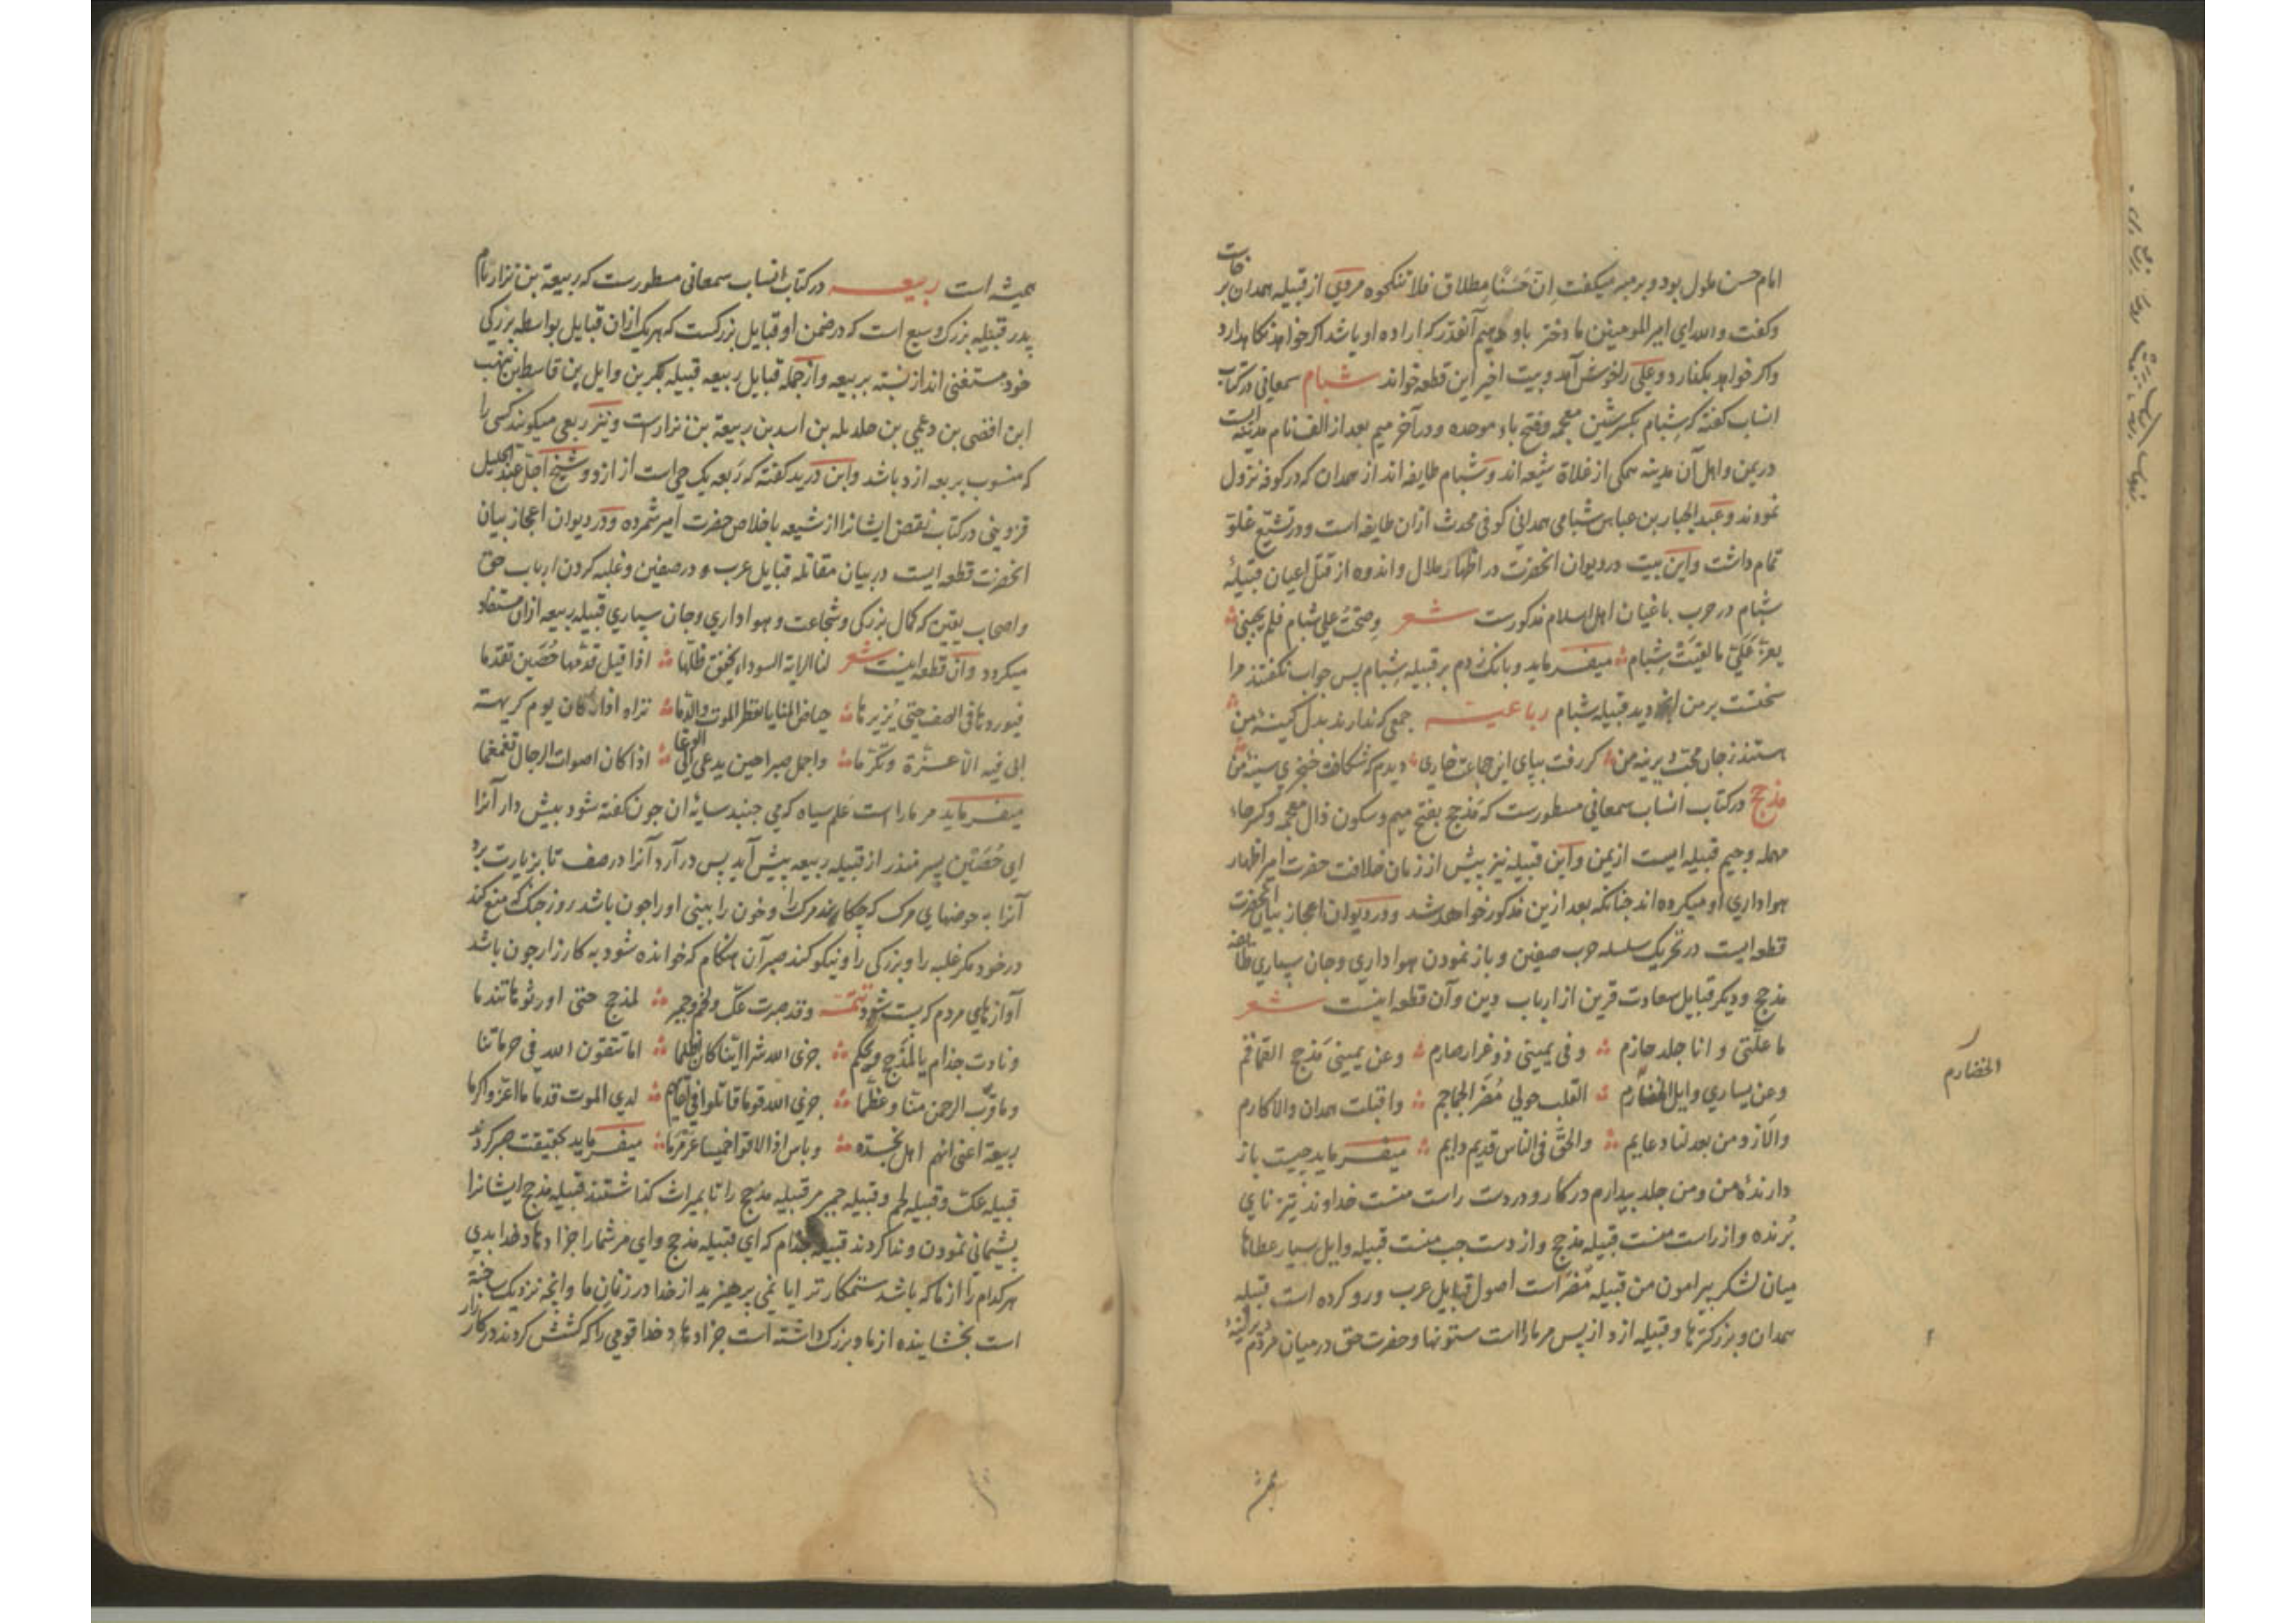 امام حسن ملول بود و بر منبر میکفت ان حسنا مطلاق فلا تنکحوه مردی از قبیله همدان برخاست
وکفت والله ای امیر المومنین ما دختر باو دهیم آنقدر که اراده او باشد اکر خواهد نکاهدارد
واکر خواهد بکذارد وعلی را خوش آمد و بیت اخیر این قطعه خواند شبام سمعانی در کتاب
انساب کفته که شبام بکسر شین معجمه وفتح باء موحده ودر آخر میم بعد از الف نام مدینه ایست
در یمن واهل آن مدینه همکی از غلاة شیعه اند وشبام طایفه اند از همدان که در کوفه نزول
نمودند وعبد الجبار بن عباس شبامی همدانی کوفی محدث ازان طایفه است ودر تشیع غلو
تمام داشت واین بیت در دیوان انحضرت در اظهار ملال واندوه از قتل اعیان قبیلهٔ
شبام در حرب باغیان اهل اسلام مذکورست شعر وصحت علی شبام فلم یجبنی
یعز علی ما لقیت شبام میفرماید وبانک زدم بر قبیله شبام پس جواب نکفتند مرا
سختست بر من انچه دید قبیله شبام رباعیه جمعی که ندارند بدل کینه من
هستند ز جان محب دیرینه من کر رفت بپای این جماعت خاری دیدم که شکافت خنجری سینه من
مذحج در کتاب انساب سمعانی مسطورست که مذحج بفتح میم وسکون ذال معجمه وکسر حاء
مهمله وجیم قبیله ایست از یمن واین قبیله نیز پیش از زمان خلافت حضرت امیر اظهار
هواداری او میکرده اند چنانکه بعد ازین مذکور خواهد شد ودر دیوان اعجاز بیان انحضرت
قطعه ایست در تحریک سلسله حرب صفین وباز نمودن هواداری وجان سپاری طایفه
مذحج ودیکر قبایل سعادت قرین از ارباب دین وآن قطعه اینست شعر
ما علتی وانا جلد حازم وفی یمینی ذو غرار صارم وعن یمینی مذحج القماقم
وعن یساری وایل الخضارم القلب حولی مضر الجماجم واقبلت همدان والاکارم
والازد من بعد لنا دعایم والحق فی الناس قدیم دایم میفرماید چیست باز
دارندهٔ من ومن جلد بیدارم در کار ودر دست راست منست خداوند تیز نای
برنده واز راست منست قبیله مذحج واز دست چپ منست قبیله وایل بسیار عطاها
میان لشکر پیرامون من قبیله مضر است اصول قبایل عرب ورو کرده است قبیله
همدان وبزرکترها وقبیله ازد از پس مر ما را است ستونها وحضرت حق در میان مردم دیرینه
الخضارم
همیشه است ربیعه در کتاب انساب سمعانی مسطورست که ربیعة بن نزار نام
پدر قبیله بزرک وسیع است که در ضمن او قبایل بزرکست که هر یک ازان قبایل بواسطه بزرکی
خود مستغنی اند از نسبة بربیعه واز جمله قبایل ربیعه قبیله بکر بن وایل بن قاسط بن هنب
ابن افصی بن دعمی بن جدیله بن اسد بن ربیعة بن نزارست ونیز ربعی میکویند کسی را
که منسوب بربعه ازد باشد وابن درید کفته که ربعه یک حی است از ازد وشیخ اجل عبد الجلیل
قزوینی در کتاب نقض ایشانرا از شیعه باخلاص حضرت امیر شمرده ودر دیوان اعجاز بیان
انحضرت قطعه ایست در بیان مقاتله قبایل عرب در صفین وغلبه کردن ارباب حق
واصحاب یقین که کمال بزرکی وشجاعت وهواداری وجان سپاری قبیله ربیعه ازان مستفاد
میکردد وآن قطعه اینست شعر لنا الرایة السوداء یخفق ظلها اذا قیل قدمها حضین تقدما
فیوردها فی الصف حتی یزیرها حیاض المنایا تقطر الموت والدما تراه اذا ما کان یوم کریهة
ابی فیه الا عزة وتکرما واجمل صبرا حین یدعی الی الوغا اذا کان اصوات الرجال تغمغما
میفرماید مر ما را است علم سیاه که می جنبد سایه ان چون کفته شود پیش دار آنرا
ای حضین پسر منذر از قبیله ربیعه پیش آید پس در آرد آنرا در صف تا بزیارت برد
آنرا به حوضهای مرک که چکاند مرک را وخون را بینی او را چون باشد روز جنک که منع کند
در خود مکر غلبه را وبزرکی را ونیکو کند صبر آن هنکام که خوانده شود به کارزار چون باشد
آوازهای مردم که پست شود تتمه وقد صبرت عک ولخم وحمیر لمذحج حتی اورثوها تندما
ونادت جذام یا لمذحج ویحکم جزی الله شرا اینا کان اظلما اما تتقون الله فی حرماتنا
وما قرب الرحمن منا وعظما جزی الله قوما قاتلوا فی لقایهم لدی الموت قدما ما اعز واکرما
ربیعة اعنی انهم اهل نجدة وباس اذا لاقوا خمیسا عرمرما میفرماید بحقیقت صبر کردند
قبیله عک وقبیله لخم وقبیله حمیر مر قبیله مذحج را تا بمیراث کذاشتند قبیله مذحج ایشانرا
پشیمانی نمودن وندا کردند قبیله جذام که ای قبیله مذحج وای مر شما را جزا دهاد خدا بدی
هر کدام را از ما که باشد ستمکارتر ایا نمی پرهیزید از خدا در زنان ما وانچه نزدیک ساخته
است بخشاینده از ما وبزرک داشته است جزا دهاد خدا قومی را که کشش کردند در کارزار